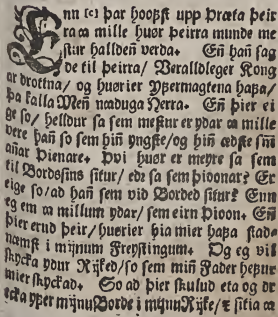 Enn [c] þar hoofst upp Þræta þeir
ra a mille huør þeirra munde me
stur halldeñ verda. Eñ hañ sag
de til þeirra/ Veralldleger Kong
ar drottna/ og huerier Yfermagtena hafa/
þa kalla Meñ næduga Herra. Eñ þier ei
ge so/ helldur sa sem mestur er ydar a mille
vere hañ so sem hiñ yngste/ og hiñ ædste sm̃
añar Þienare. Þvi huør er meyre sa sem
til Bordsins situr/ edr sa sem þioonar? Er
eige so/ ad hañ sem vid Borded situr? Enn
eg em a millum ydar/ sem eirn Þioon. Eñ
þier erud þeir/ huerier hia mier hafa stad-
næmst i mijnum Freystingum. Og eg vil
skycka ydur Rijked/ so sem miñ Fader hefur
mier skyckad. So ad þier skulud eta og dr
ecka yfer mijnu Borde i mijnu Rijke/ & sitia a